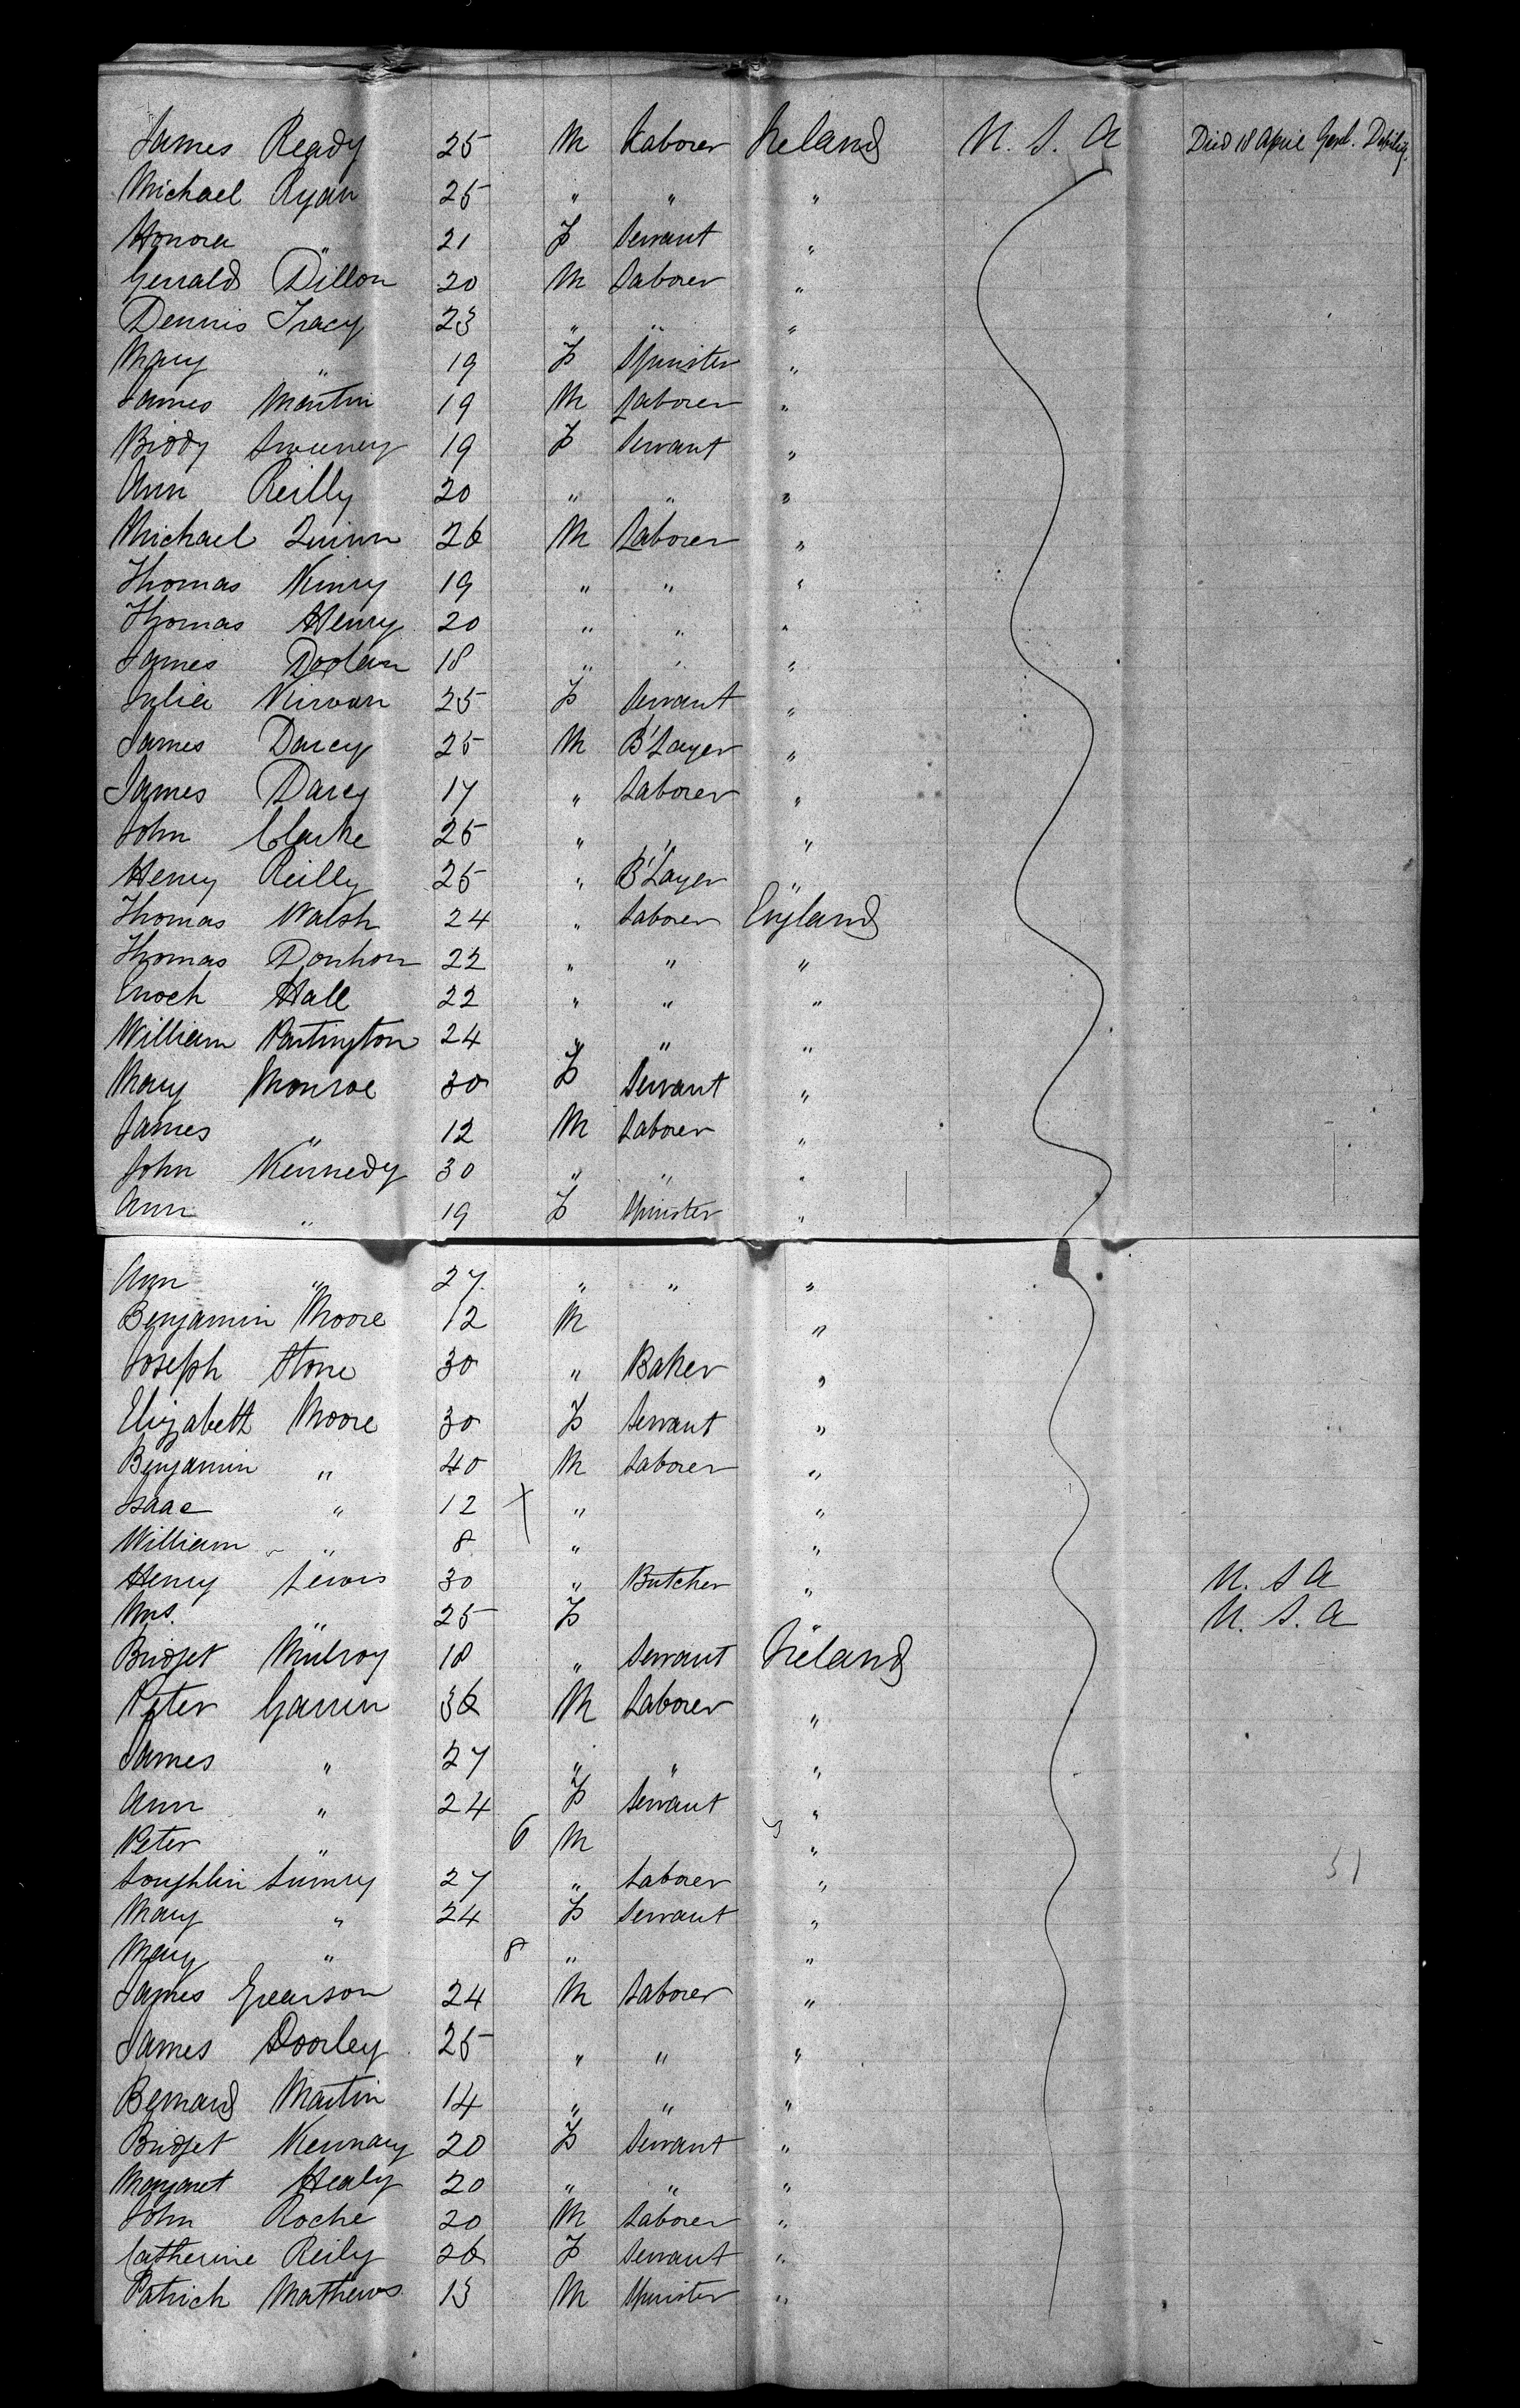 James Ready 25 M Laborer Ireland U. S. A Died 18 April Genl. Debility.
Michael Ryan 25 " " "
Honora " 21 F Servant "
Gerrald Dillon 20 M Laborer "
Dennis Tracy 23 " " "
Mary " 19 F Spinster "
James Martin 19 M Laborer "
Biddy Sweeney 19 F Servant "
Ann Reilly 20 " " "
Michael Quinn 26 M Laborer "
Thomas 19 " " "
Thomas Henry 20 " " "
James Doolan 18 " " "
Julia Kirwan 25 F Servant "
James Darcy 25 M B'Layer "
James Darcy 17 " Laborer "
John Clarke 25 " " "
Henry Reilly 25 " B'Layer "
Thomas Walsh 24 " Laborer England
Thomas Donhon 22 " " "
Enoch Hall 22 " " "
William Partington 24 " " "
Mary Monroe 30 F Servant "
James " 12 M Laborer "
John Kennedy 30 " " "
Ann " 19 F Spinster "
Ann " 27 " " "
Benjamin Moore 12 M "
Joseph Stone 30 " Baker "
Elizabeth Moore 30 F Servant "
Benjamin " 40 M Laborer "
Isaac " 12 " "
William " 8 " "
Henry Lewis 30 " Butcher " U. S A
Mrs. " 25 F U. S. A
Bridget Mulroy 18 " Servant Ireland
Peter 36 M Laborer "
James " 27 " " "
Ann " 24 F Servant "
Peter " 6 M "
Loughlin 27 " Laborer "
Mary " 24 F Servant "
Mary " 8 " "
James Grearson 24 M Laborer "
James Doorley 25 " " "
Bernard Martin 14 " " "
Bridget 20 F Servant "
Margaret Healy 20 " " "
John Roche 20 M Laborer "
Catherine Reily 26 F Servant "
Patrick Mathews 13 M Spinster "